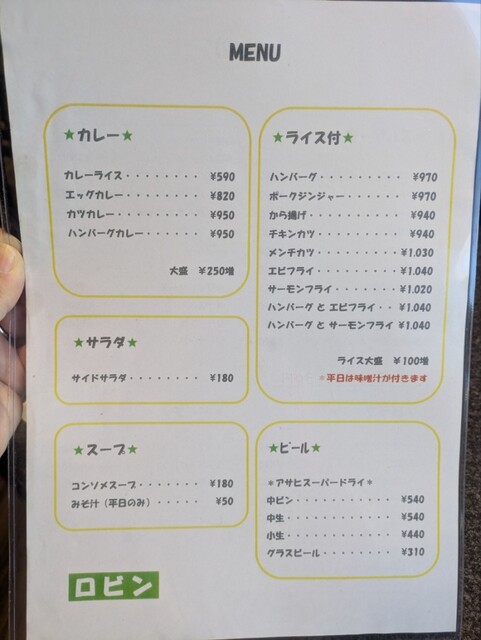 MENU
★カレー★
カレーライス・・・・・・・・ ¥590
エッグカレー・・・・・・・・ ¥820
カツカレー・・・・・・・・・ ¥950
ハンバーグカレー・・・・・・ ¥950
大盛 ¥250増
★サラダ★
サイドサラダ・・・・・・・・ ¥180
★スープ★
コンソメスープ・・・・・・・ ¥180
みそ汁（平日のみ）・・・・・ ¥50
ロビン
★ライス付★
ハンバーグ・・・・・・・・・ ¥970
ポークジンジャー・・・・・・ ¥970
から揚げ・・・・・・・・・・ ¥940
チキンカツ・・・・・・・・・ ¥940
メンチカツ・・・・・・・・・ ¥1.030
エビフライ・・・・・・・・・ ¥1.040
サーモンフライ・・・・・・・ ¥1.020
ハンバーグ と エビフライ・・ ¥1.040
ハンバーグ と サーモンフライ ¥1.040
ライス大盛 ¥100増
*平日は味噌汁が付きます
★ビール★
*アサヒスーパードライ*
中ビン・・・・・・・・・・・ ¥540
中生・・・・・・・・・・・・ ¥540
小生・・・・・・・・・・・・ ¥440
グラスビール・・・・・・・・ ¥310